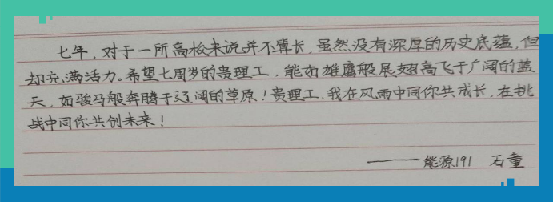 七年，对于一所高校来说并不算长，虽然没有深厚的历史底蕴，但
却充满活力。希望七周岁的贵理工，能如雄鹰般展翅高飞于广阔的蓝
天，如骏马般奔腾于辽阔的草原！贵理工，我在风雨中同你共成长，在挑
战中同你共创未来！
——能源191 石童